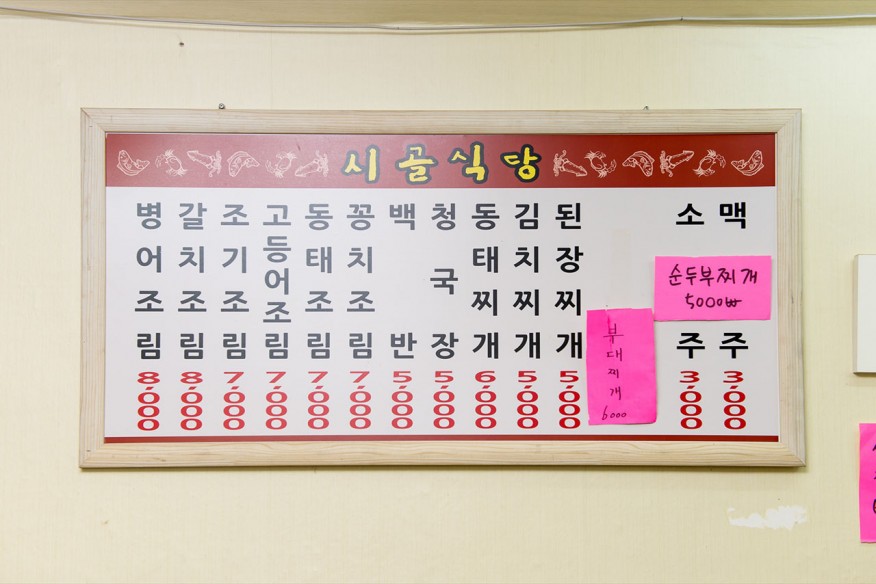 시골식당
병어조림 8,000
갈치조림 8,000
조기조림 7,000
고등어조림 7,000
동태조림 7,000
꽁치조림 7,000
백반 5,000
청국장 5,000
동태찌개 6,000
김치찌개 5,000
된장찌개 5,000
부대찌개 6000
순두부찌개
5000₩
소주 3,000
맥주 3,000